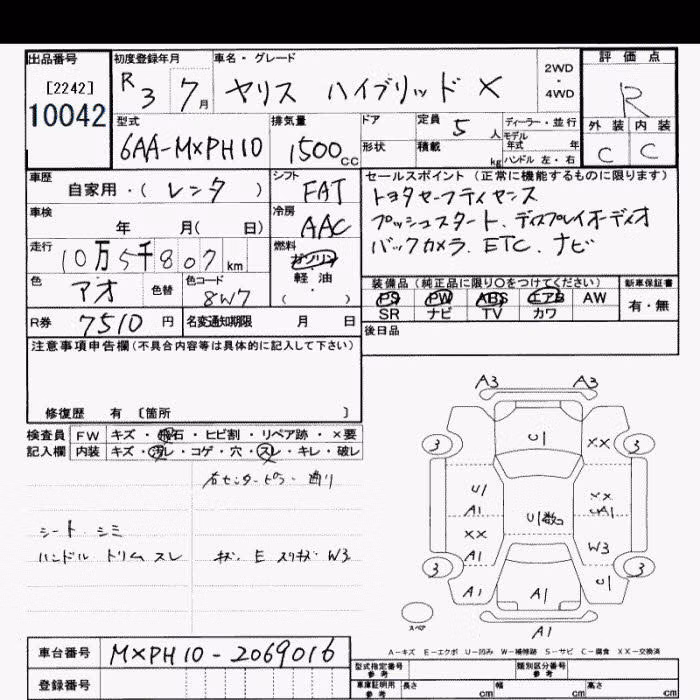 出品番号 初度登録年月 車名・グレード 2WD ・ 4WD 評価点
[2242] R3 7月 ヤリス ハイブリッド X R
10042
型式 排気量 ドア 定員 5人 ディーラー・並行 外装 内装
6AA-MXPH10 1500cc 形状 積載 kg モデル年式 年 C C
ハンドル 左・右
車歴 自家用・(レンタ) シフト FAT セールスポイント(正常に機能するものに限ります)
トヨタセーフティセンス
車検 年 月(日) 冷房 AAC プッシュスタート、ディスプレイオーディオ
走行 10万5千807km 燃料 ガソリン 軽油 ( ) バックカメラ、ETC、ナビ
色 アオ 色替 色コード 8W7 装備品(純正品に限り○をつけてください) 新車保証書
PS PW ABS エアB AW 有・無
SR ナビ TV カワ
R券 7510円 名変通知期限 月 日 後日品
注意事項申告欄(不具合内容等は具体的に記入して下さい)
修復歴 有 〔箇所 〕
検査員 FW キズ・飛石・ヒビ割・リペア跡・×要
記入欄 内装 キズ・汚レ・コゲ・穴・スレ・キレ・破レ
右センターピラー 曲り
シート シミ
ハンドル トリム スレ キズ E スリキズ W3
A3 A3
3 U1 XX 3
U1 XX
A1 U1数コ UA1
XX W3
A1
3 A1 A1 U1 3
スペア A1
A-キズ E-エクボ U-凹み W-補修跡 S-サビ C-腐食 XX-交換済
車台番号 MXPH10-2069016
登録番号 型式指定番号 参考 類別区分番号 参考
車庫証明用 参考 長さ cm 幅 cm 高さ cm